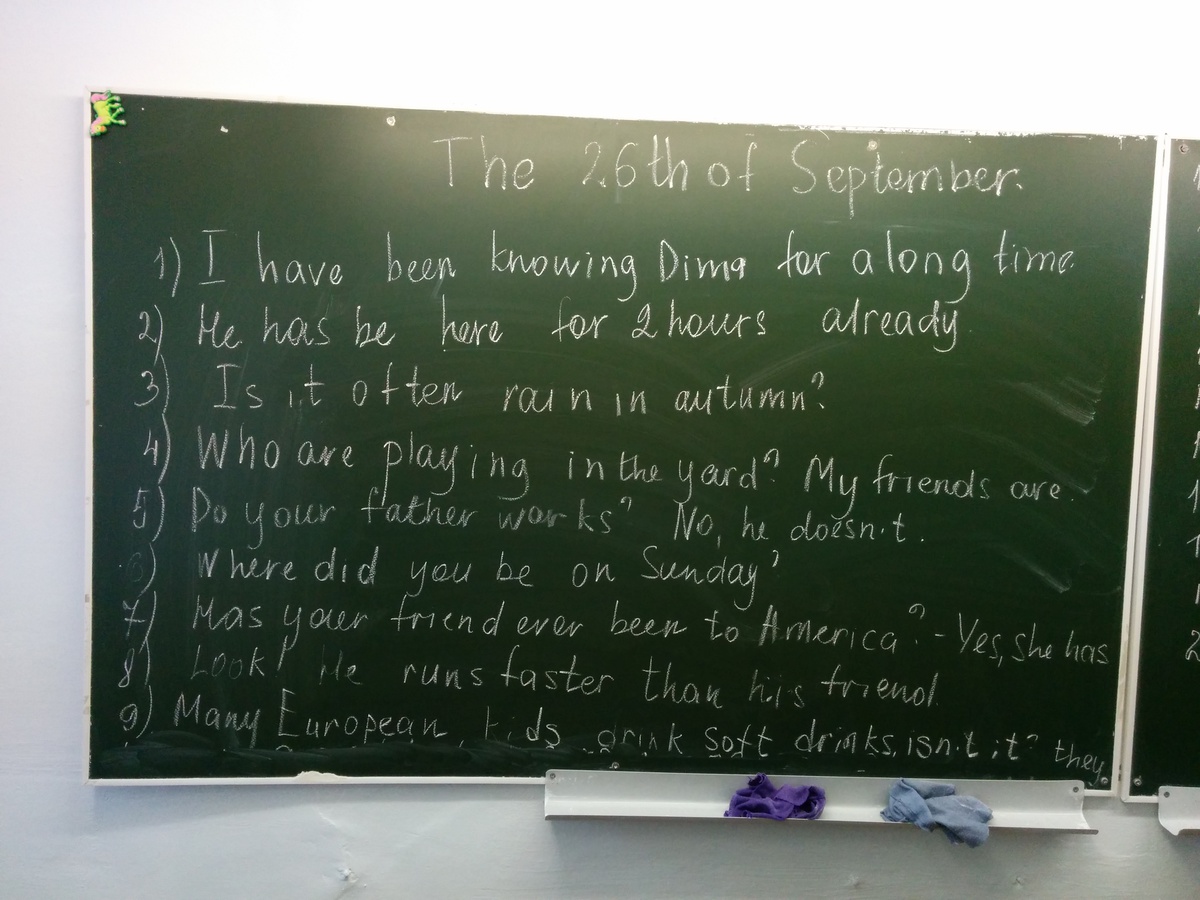 The 26th of September.
1) I have been knowing Dima for a long time.
2) He has be here for 2 hours already.
3) Is it often rain in autumn?
4) Who are playing in the yard? My friends are.
5) Do your father works? No, he doesn't.
6) Where did you be on Sunday?
7) Has your friend ever been to America? - Yes, she has
8) Look! He runs faster than his friend.
9) Many European kids drink soft drinks, isn't it? they